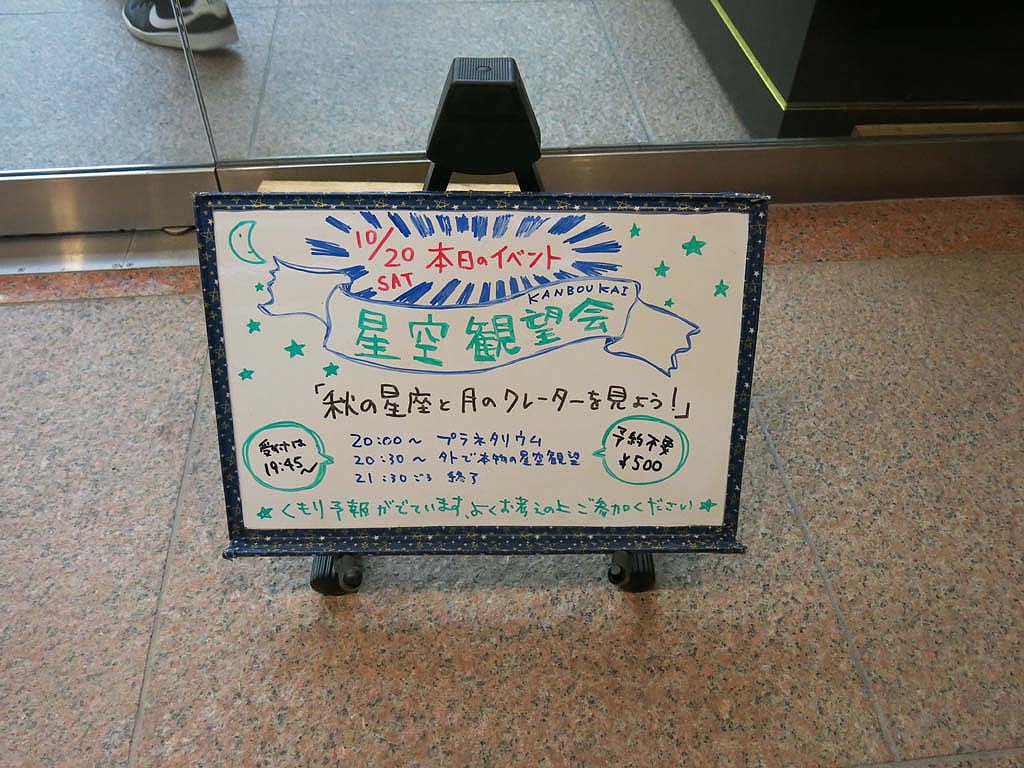 10/20 本日のイベント
SAT
KANBOUKAI
星空観望会
「秋の星座と月のクレーターを見よう!」
受付は
19:45~
20:00~ プラネタリウム
20:30~ 外で本物の星空観望
21:30ごろ 終了
予約不要
¥500
★くもり予報がでています、よくお考えの上ご参加ください★